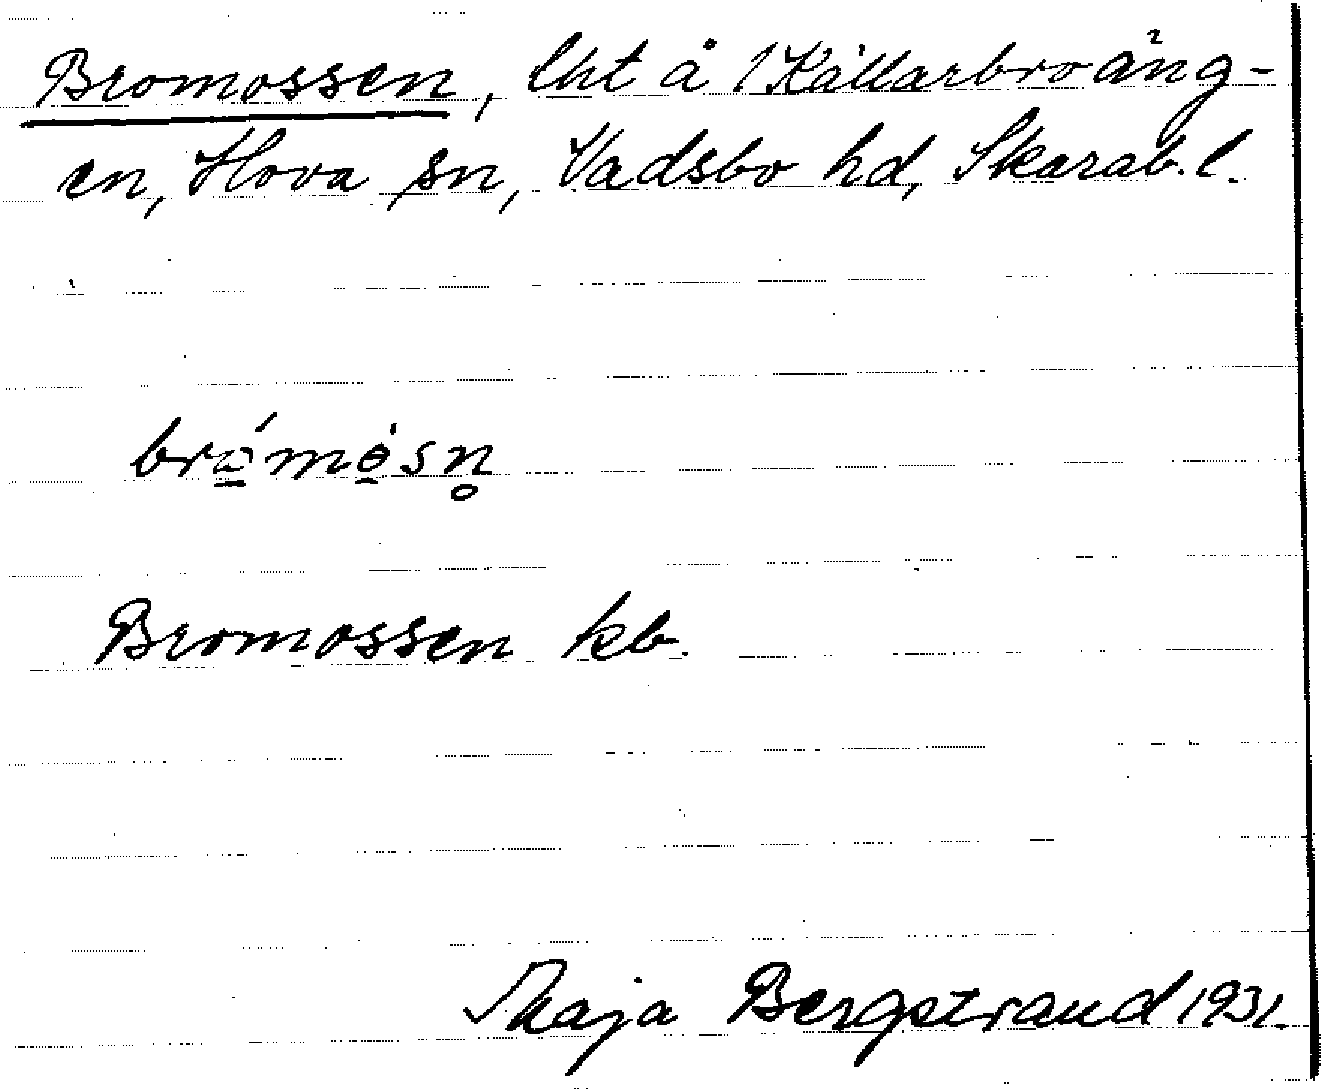 Bromossen, lht å 1 Källarbroäng-
en, Hova sn, Vadsbo hd, Skarab. l.
Bromossen kb.
Maja Bergstrand 1931.